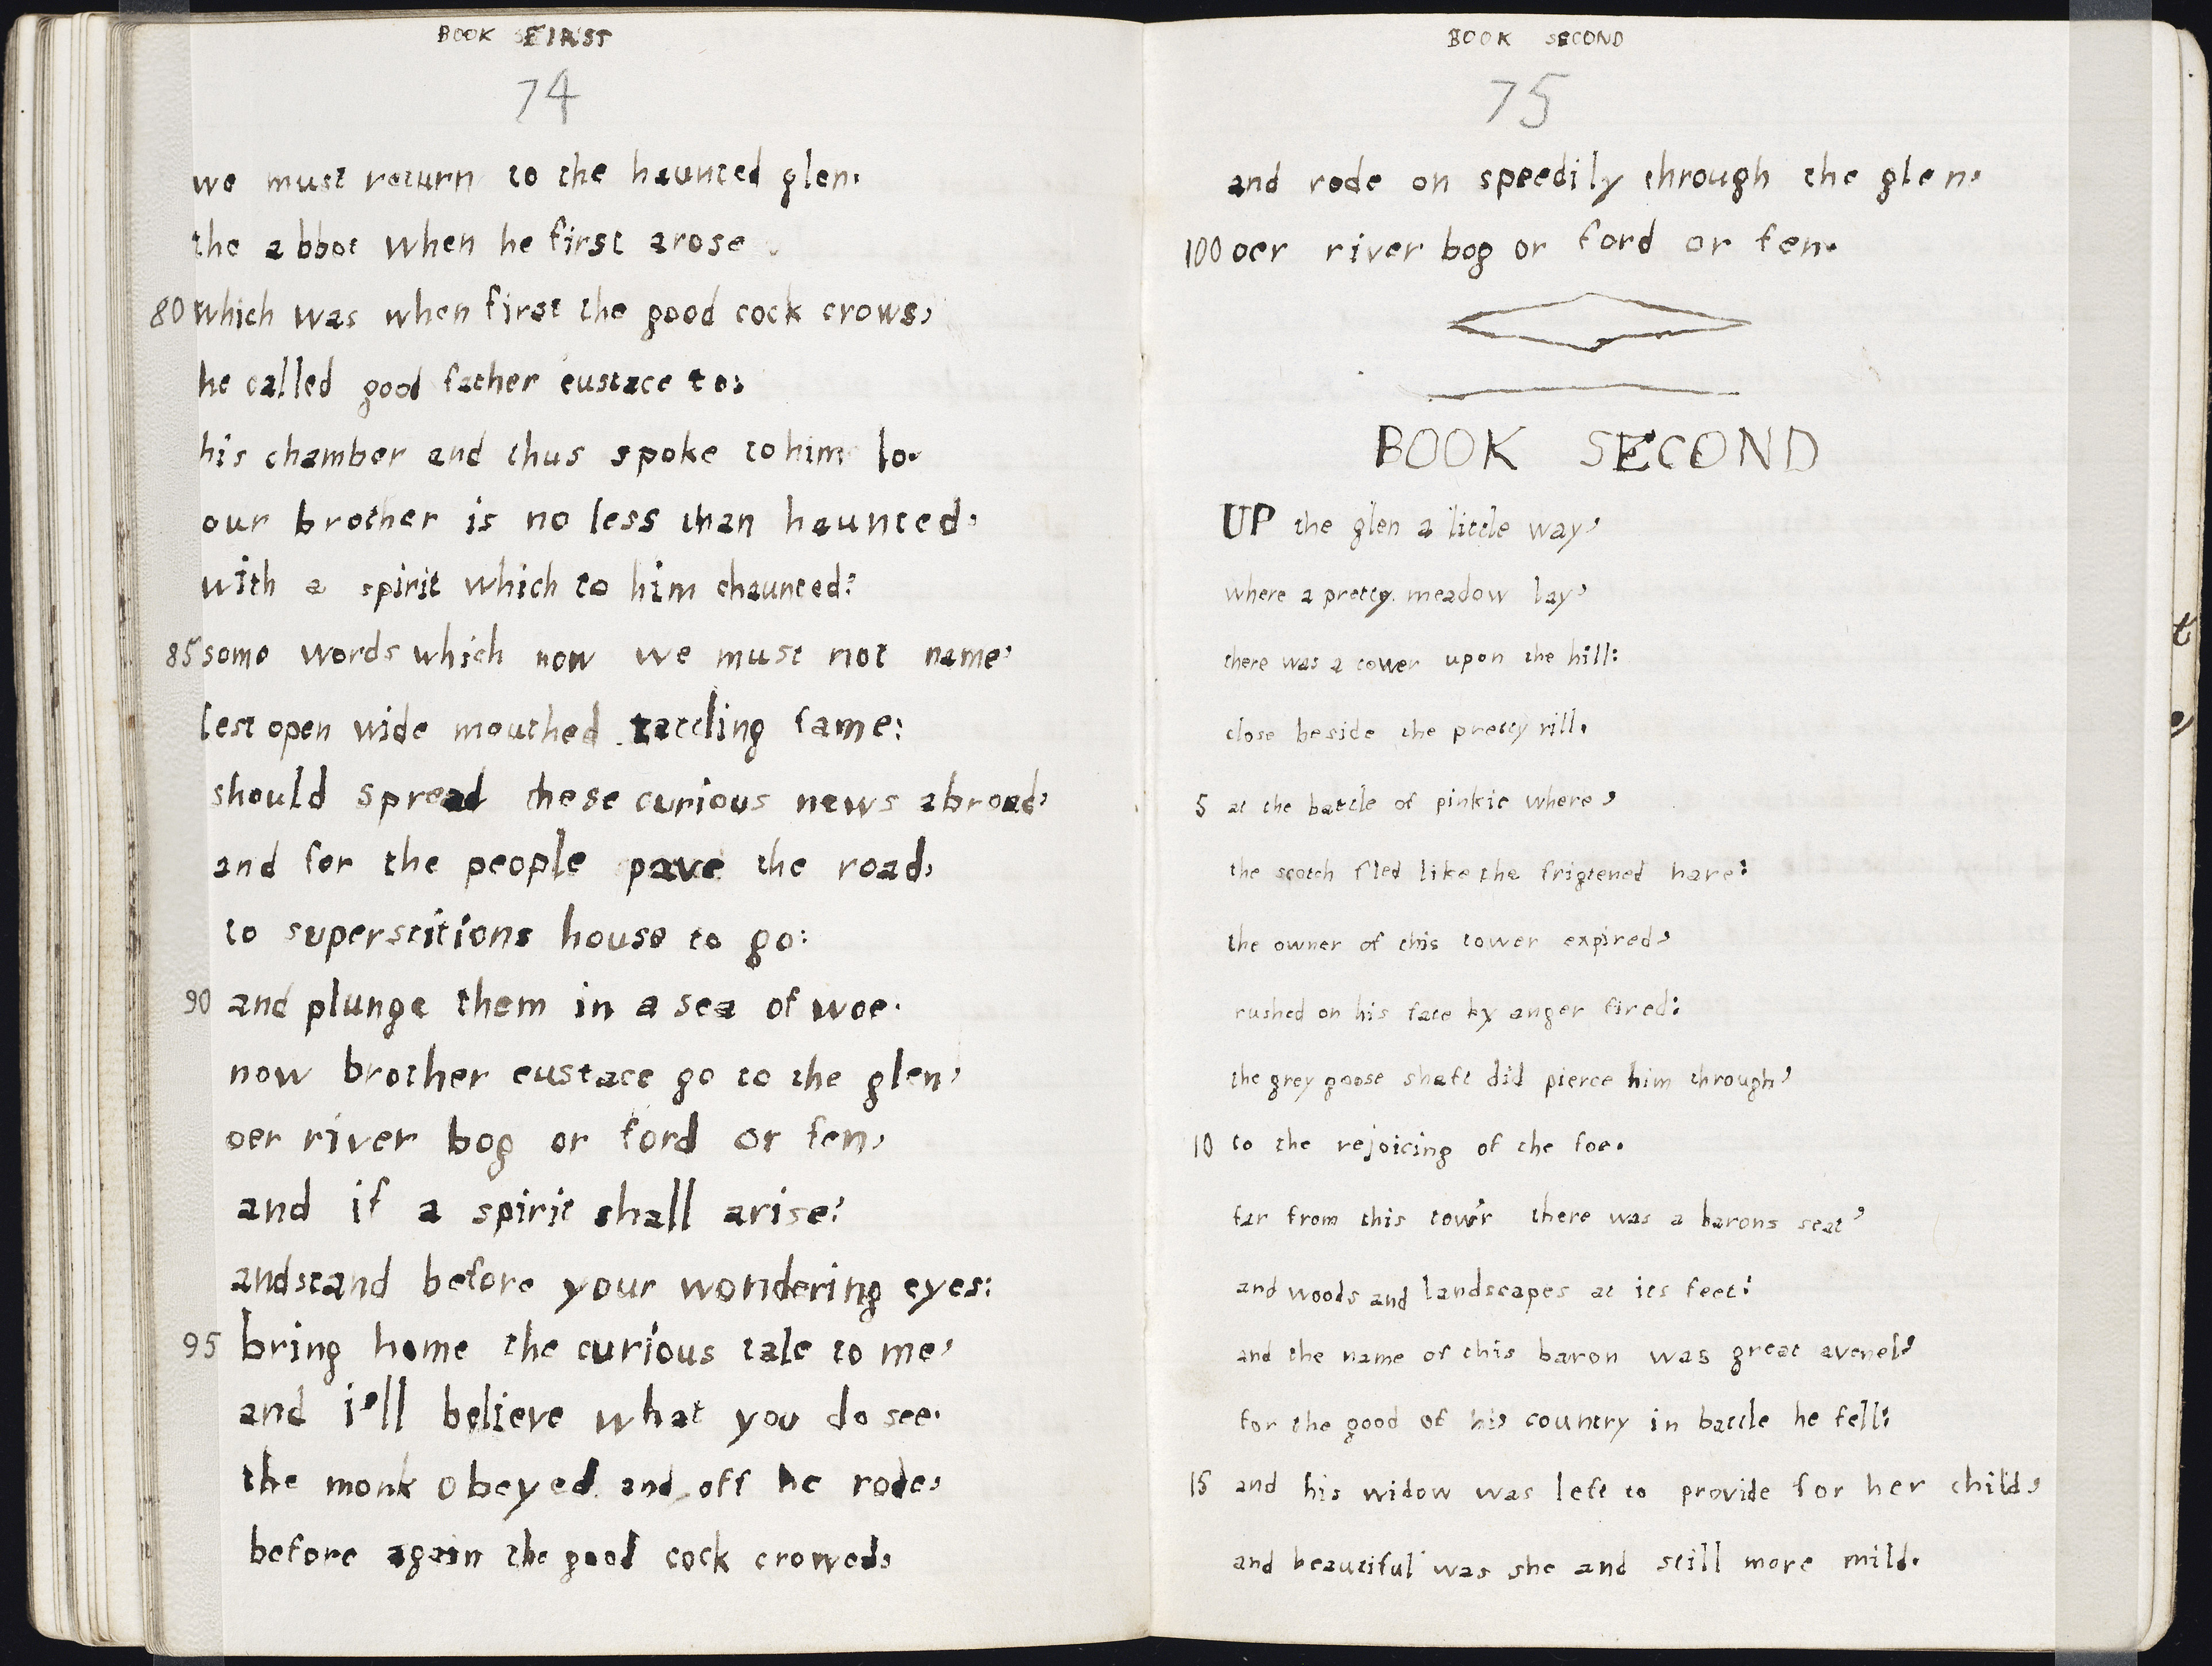 BOOK FIRST
74
we must return to the haunted glen.
the abbot when he first arose
80 which was when first the good cock crows,
he called good father eustace to;
his chamber and thus spoke to him lo.
our brother is no less than haunted,
with a spirit which to him chaunted:
85 some words which now we must not name,
lest open wide mouthed tattling fame:
should spread these curious news abroad,
and for the people pave the road,
to superstitions house to go:
90 and plunge them in a sea of woe.
now brother eustace go to the glen,
oer river bog or ford or fen,
and if a spirit shall arise:
andstand before your wondering eyes:
95 bring home the curious tale to me,
and i'll believe what you do see.
the monk obeyed and off he rode,
before again the good cock crowed,
BOOK SECOND
75
and rode on speedily through the glen,
100 oer river bog or ford or fen.
BOOK SECOND
UP the glen a little way,
where a pretty meadow lay,
there was a tower upon the hill:
close beside the pretty rill.
5 at the battle of pinkie where,
the scotch fled like the frigtened hare:
the owner of this tower expired,
rushed on his fate by anger fired:
the grey goose shaft did pierce him through,
10 to the rejoicing of the foe.
far from this tow'r there was a barons seat,
and woods and landscapes at its feet:
and the name of this baron was great avenel,
for the good of his country in battle he fell:
15 and his widow was left to provide for her child,
and beautiful was she and still more mild.
t